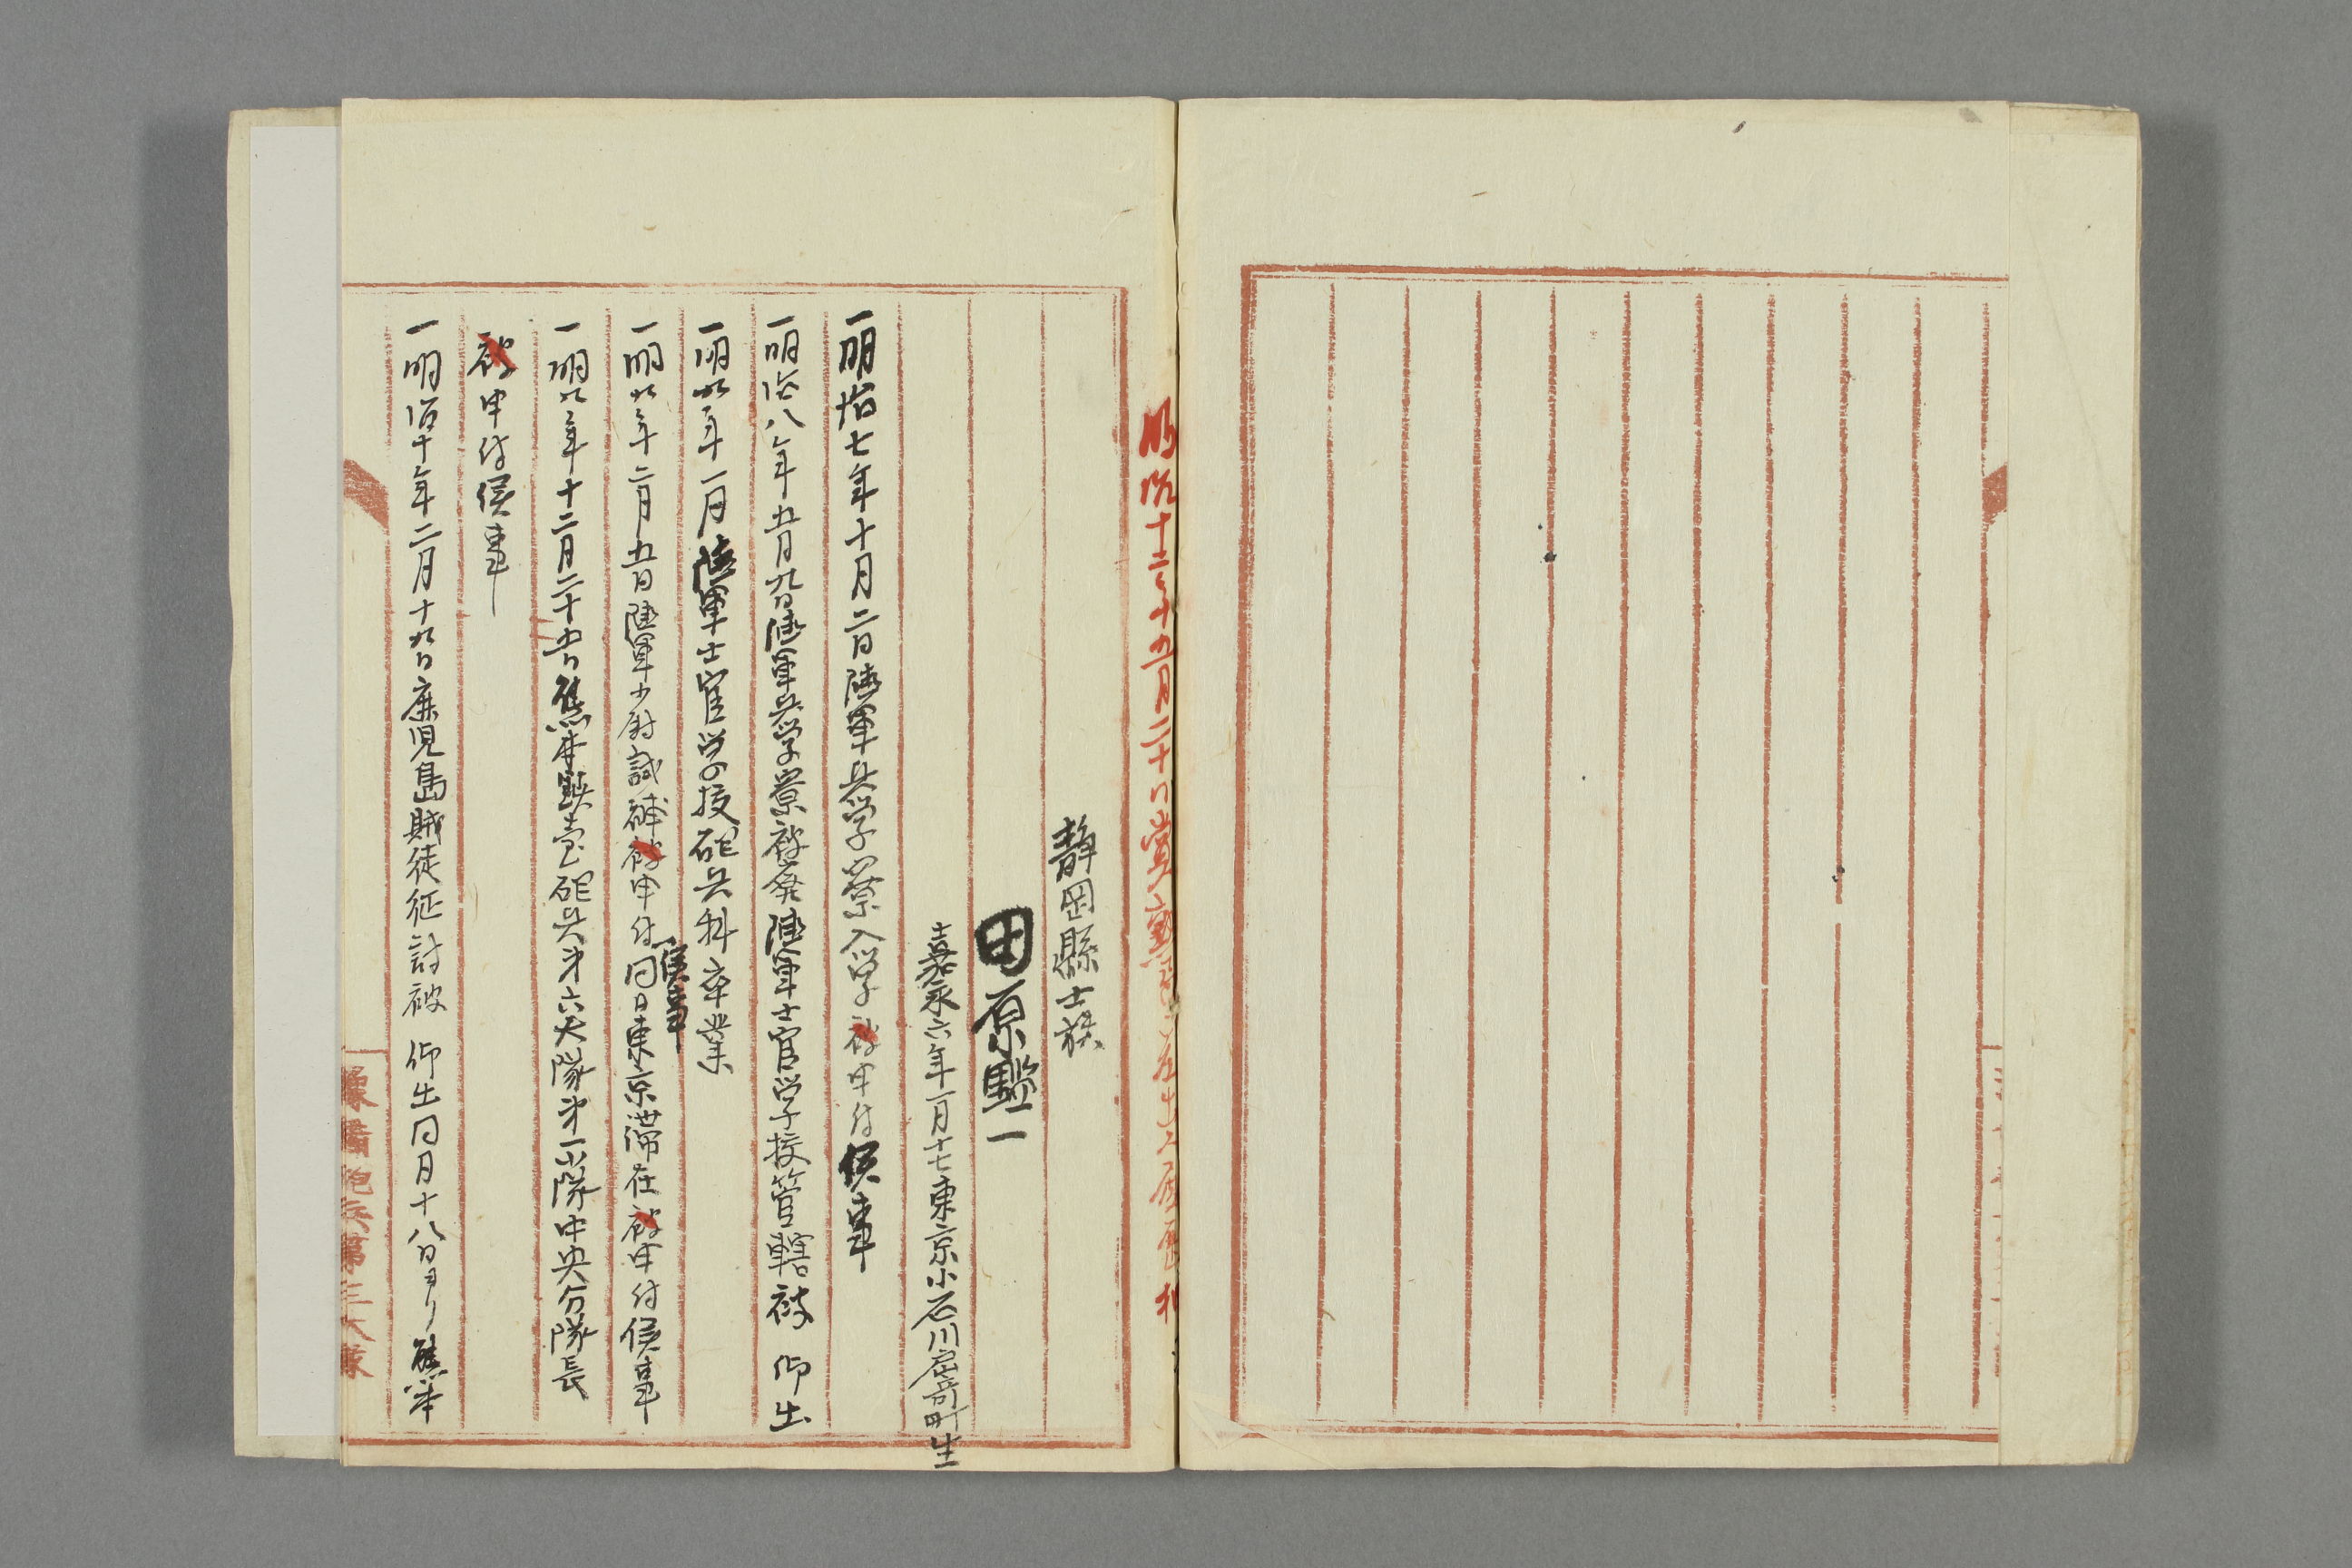 明治十二年十五月二十
静岡縣士族
田原鑿一
嘉永六年一月十七東京小石川
町生
一明治七年十月二日陸軍兵学寮入学被申付候事
一明治八年五月九日陸軍兵学寮被廃陸軍士官学校管轄被　仰出
一明九年一月陸軍士官学校砲兵科卒業
一明九年二月五日陸軍少尉試補被申付候事同日東京滞在被申付候事
一明九年十二月二十五日熊本鎮台砲兵第六大隊第一小隊中央分隊長
被申付候事
一明治十年二月十九日鹿児島賊徒征討被　仰出同月十八日ヨリ熊本
豫備砲兵第三大隊